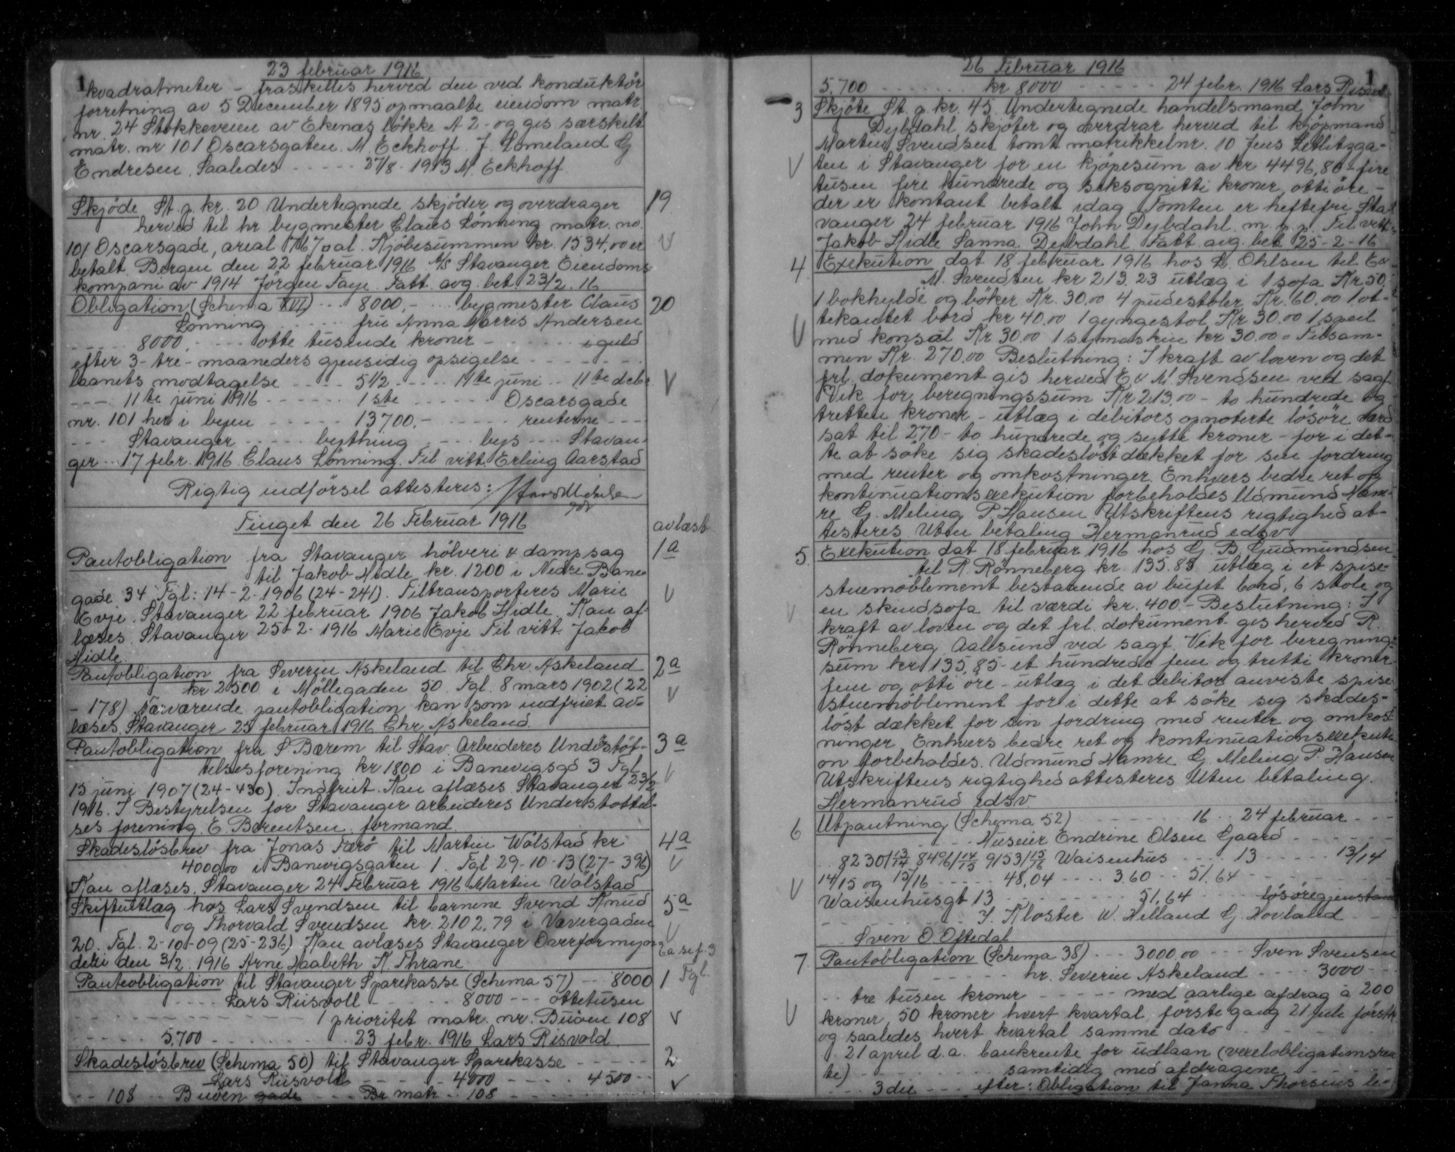 23 februar 1916
1
kvadratmeter - fraskilles herved den ved konduktør
forretning av 5 December 1895 opmaalte eiendom matr.
nr. 24 Stokkeveien av Ekenæs løkke N 2 - og gis særskilt
matr. nr 101 Oscarsgaten. M. Eckhoff. J. Lomeland G
Endresen. Saaledes - - - - 27/8 - 1913 M. Eckhoff
Skjøde St. g kr. 20 Undertegnede skjøder og overdrager 19
herved til hr bygmester Claus Lønning matr. no
101 Oscarsgade, areal 767 □al. Kjøbesummen kr. 1534,00 er
betalt. Bergen den 22 februar 1916 A/S Stavanger Eiendoms
kompani av 1914 Jörgen Faye. Fatt. avg. bet. 23/2. 16
Obligation (Schema XIII) - - 8000,- - - - bygmester Claus 20
Lønning - - - - - fru Anna Marris Andersen
- - - 8000 - - - otte tusende kroner - - - - - - i guld
efter 3 - tre - maaneders gjensidig opsigelse - - - - - -
laanets modtagelse - - - - 5 1/2 - - - - 11te juni - - 11te decbr
- - - 11te juni 1916 - - - - - 1ste - - - - - Oscarsgade
nr. 101 her i byen - - - - - 13700,- - - - - - renterne - - -
- - - Stavanger - - - - - bything - - - byes - - - Stavan-
ger - - 17 febr. 1916 Claus Lønning. Til vitt. Erling Aarstad
Rigtig indförsel attesteres:
Tinget den 26 Februar 1916 avlæst
Pantobligation fra Stavanger hølveri & dampsag 1a
til Jakob Hidle kr. 1200 i Nedre Bane
gade 34 Tgl: 14 - 2 - 1906 (24 - 241). Tiltransporteres Marie
Evje. Stavanger 22 februar 1906 Jakob Hidle. Kan af-
læses. Stavanger 25 - 2 - 1916 Marie Evje Til vitt. Jakob
Hidle
Pantobligation fra Severin Askeland til Chr. Askeland 2a
kr 2500 i Möllegaden 50 Tgl. 8 mars 1902 (22
- 178) Nærværende pantobligation kan som indfriet av-
læses. Stavanger 25 februar 1916 Chr. Askeland
Pantobligation fra S Bærem til Stav. Arbeideres Understöt- 3a
telsesforening kr 1800 i Banevigsgd 3 Tgl.
15 juni 1907 (24 - 430). Indfriet. Kan aflæses. Stavanger 23/2
1916. I Bestyrelsen for Stavanger arbeideres Understøttel-
ses forening. E. Berentsen formand
Skadeslösbrev fra Jonas Farö til Martin Wølstad kr. 4a
4000,00 i Banevigsgaten 1. Tgl 29 - 10 - 13 (27 - 396)
Kan aflæses. Stavanger 24 Februar 1916 Martin Wølstad
Skifteutlag hos Lars Svendsen til barnene Svend Knud 5a
og Thorvald Svendsen kr. 2102,79 i Vævergaden
20. Tgl. 2 - 10 - 09 (25 - 236) Kan avlæses Stavanger Overformyn-
deri den 3/2. 1916 Arne Haabeth K. Thrane
Panteobligation til Stavanger Sparekasse (Schema 57) - - 8000 1 Tgl.
- - - - - Lars Risvoll - - - - - 8000 - - - ottetusen
- - - - - - - 1 prioritet matr. nr. Buöen 108
- - - - 5,700 - - - - - - 23 febr. 1916 Lars Risvold.
Skadeslösbrev (Schema 50) til Stavanger Sparekasse - - - - 2
Lars Risvoll - - - - - 4000 - - - - - 4500 - -
- - 108 - - Buöen gade - - - Br matr. - 108 - - - - - -
26 Februar 1916
1
5,700 - - - - - - - kr 8000 - - - - - - 24 febr. 1916 Lars Risvold
3 Skjöte St. g kr. 45. Undertegnede handelsmand John
Dybdahl skjöter og overdrar herved til kjöpmand
Martin Svendsen tomt matrikkelnr. 10 Jens Zetlitzga-
ten i Stavanger for en kjöpesum av kr 4496,80 - fire
tusen fire hundrede og seksognitti kroner, otti öre -
der er kontant betalt idag Tomten er heftefri Sta-
vanger 24 februar 1916 John Dybdahl. m. p. p. Til vitt.
Jakob Hidle Sanna Dybdahl Fatt. avg. bet. 25 - 2 - 16
4 Exekution dat 18 februar 1916 hos Ohlsen til Ev
M. Svendsen kr 213.23 utlæg i 1 sofa Kr 50,
1 bokhylde og böker Kr. 30.00 4 pudestoler Kr. 60,00 1 ot-
tekantet bord kr 40,00 1 gyngestol Kr 30.00 1 speil
med konsol Kr 30.00 1 symaskin kr 30.00 - Tilsam-
men Kr. 270.00 Beslutning: I kraft av loven og det
frl. dokument gis herved Ev M. Svendsen ved sagf.
Vik for beregningssum Kr 213.00 - to hundrede og
tretten kroner - utlæg i debitors opnoterte lösöre værd
sat til 270 - to hundrede og sytti kroner - for i det-
te at söke sig skadeslöst dækket for sin fordring
med renter og omkostninger. Enhvers bedre ret og
kontinuationsexekution forbeholdes Udmund Ham-
re G. Meling P. Hansen Utskriftens rigtighed at-
testeres Uten betaling Hermanrud edsv
5. Exekution dat 18 februar 1916 hos G. B. Gudmundsen
til R. Rönneberg kr. 135.85 utlæg i et spise-
stuemöblement bestaaende av bufet bord, 6 stole og
en skindsofa til værdi kr. 400.- Beslutning: I
kraft av loven og det frl. dokument gis herved R.
Rönneberg Aalesund ved sagf. Vik for beregnings-
sum kr. 135,85 - et hundrede fem og tretti kroner
fem og otti öre - utlæg i det debitor anviste spise
stuemöblement for i dette at söke sig skades-
löst dækket for sin fordring med renter og omkost
ninger. Enhvers bedre ret og kontinuationsexekuti-
on forbeholdes. Udmund Hamre G. Meling P. Hansen
Utskriftens rigtighed attesteres Uten betaling.
Hermanrud edsv
6 Utpantning (Schema 52) - - - - - - - 16 - - 24 februar - - -
- - - - - - Husier Endrine Olsen Gaard - - - - -
8230 13/14 8496 14/15 9153 15/16 Waisenhus - - - 13 - - - - 13/14
14/15 og 15/16 - - - - - 48,04 - - - 3.60 - - 51,64 - - -
Waisenhusgt 13 - - - - - - - - 51,64 - - - - lösöregjenstand
- - - - - - - - J. Kloster W. Helland G Hovland
Sven O. Oftedal
7 Pantobligation (Schema 38) - - 3000.00 - - - Sven Svensen
- - - - - - - hr. Severin Askeland - - - - 3000 - -
- - tre tusen kroner - - - - - med aarlige afdrag à 200
kroner, 50 kroner hvert kvartal, förste gang 21 juli först
og saaledes hvert kvartal samme dato
21 april d.a. bankrente for udlaan (
te) - - - - - - - samtidig med afdragene - - - - -
- - 3 die - - - - efter: Obligation til Janna Thorsens le-